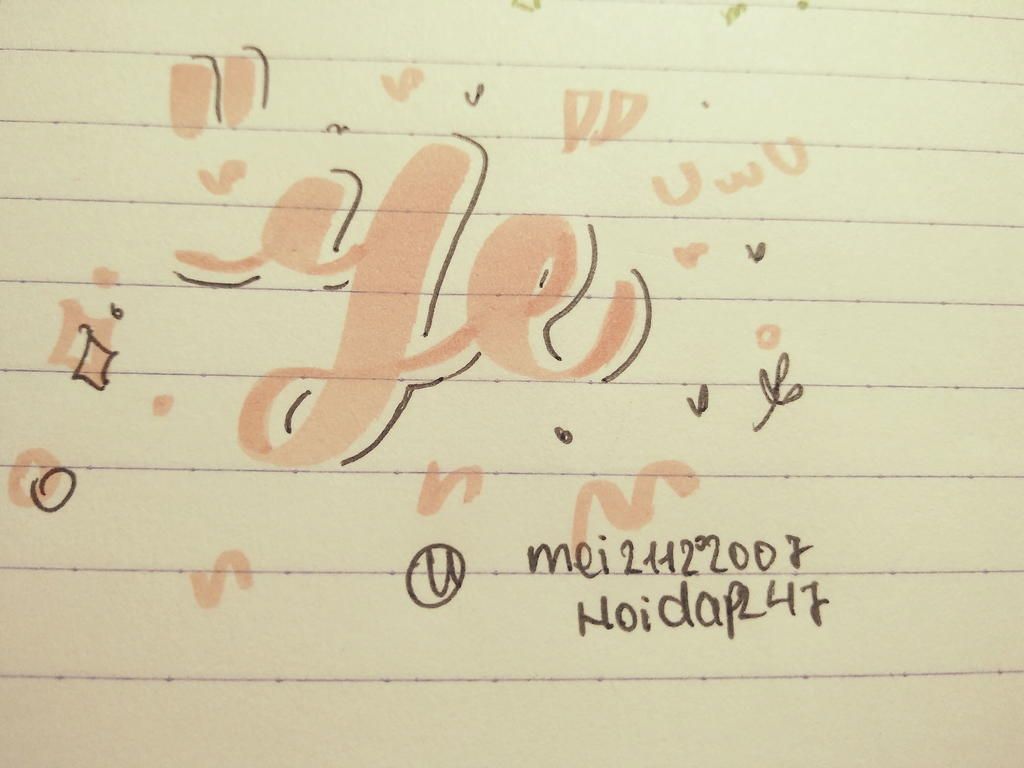 "Ye"
UwU
U mei21122007
Hoidap247